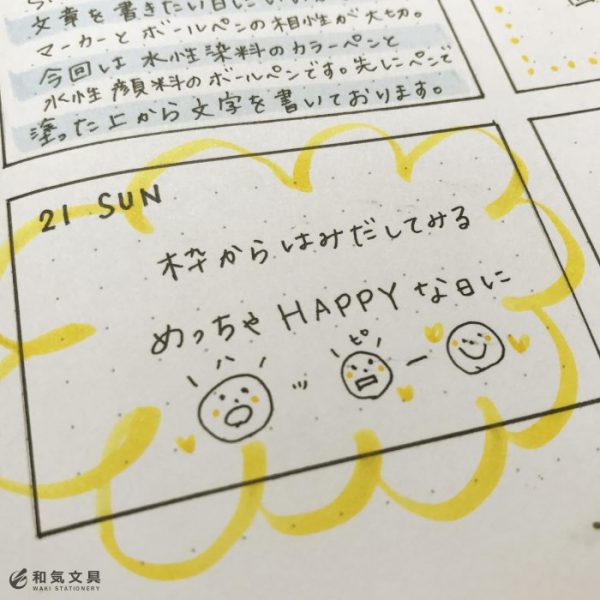 文章を書きたい日に
マーカーとボールペンの相性が大切。
今回は水性染料のカラーペンと
水性顔料のボールペンです。先にペンで
塗った上から文字を書いております。
21 SUN
枠からはみだしてみる
めっちゃHAPPYな日に
ハッピー
和気文具
WAKI STATIONERY